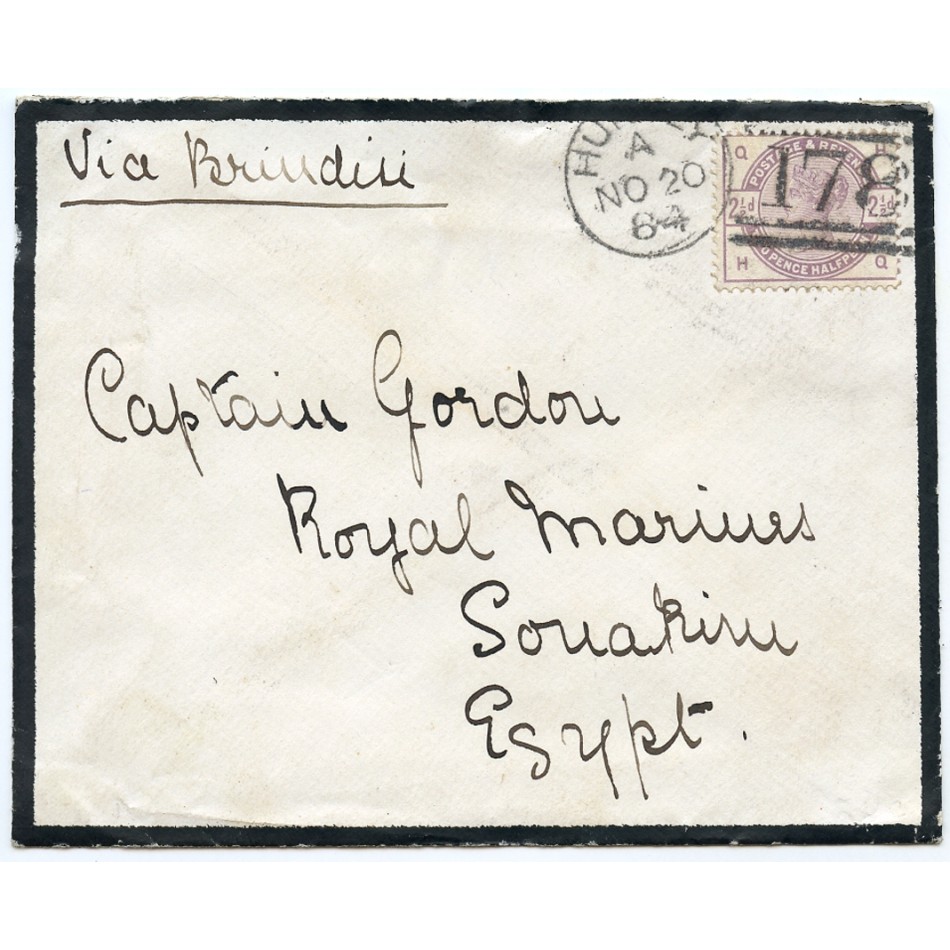 Via Brindisi
A
NO 20
84
178
Q H
POSTAGE & REVEN
2½d 2½d
PENCE HALFP
H Q
Captain Gordon
Royal Marines
Souakim
Egypt.